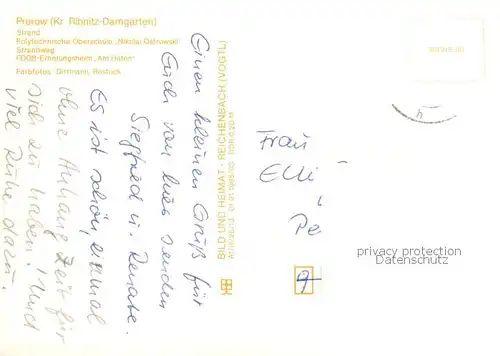 Prerow (Kr. Ribnitz-Damgarten)
Strand
Polytechnische Oberschule „Nikolai Ostrowski"
Strandweg
FDGB-Erholungsheim „Am Hafen"
Farbfotos: Dittmann, Rostock
Einen kleinen Gruß für
Euch von hier senden
Siegfried u. Renate.
Es ist schön, einmal
ohne Anhang Zeit für
sich zu haben! Und
viel Ruhe dazu.
BILD UND HEIMAT · REICHENBACH (VOGTL)
Frau
Elli
Pe
9
privacy protection
Datenschutz